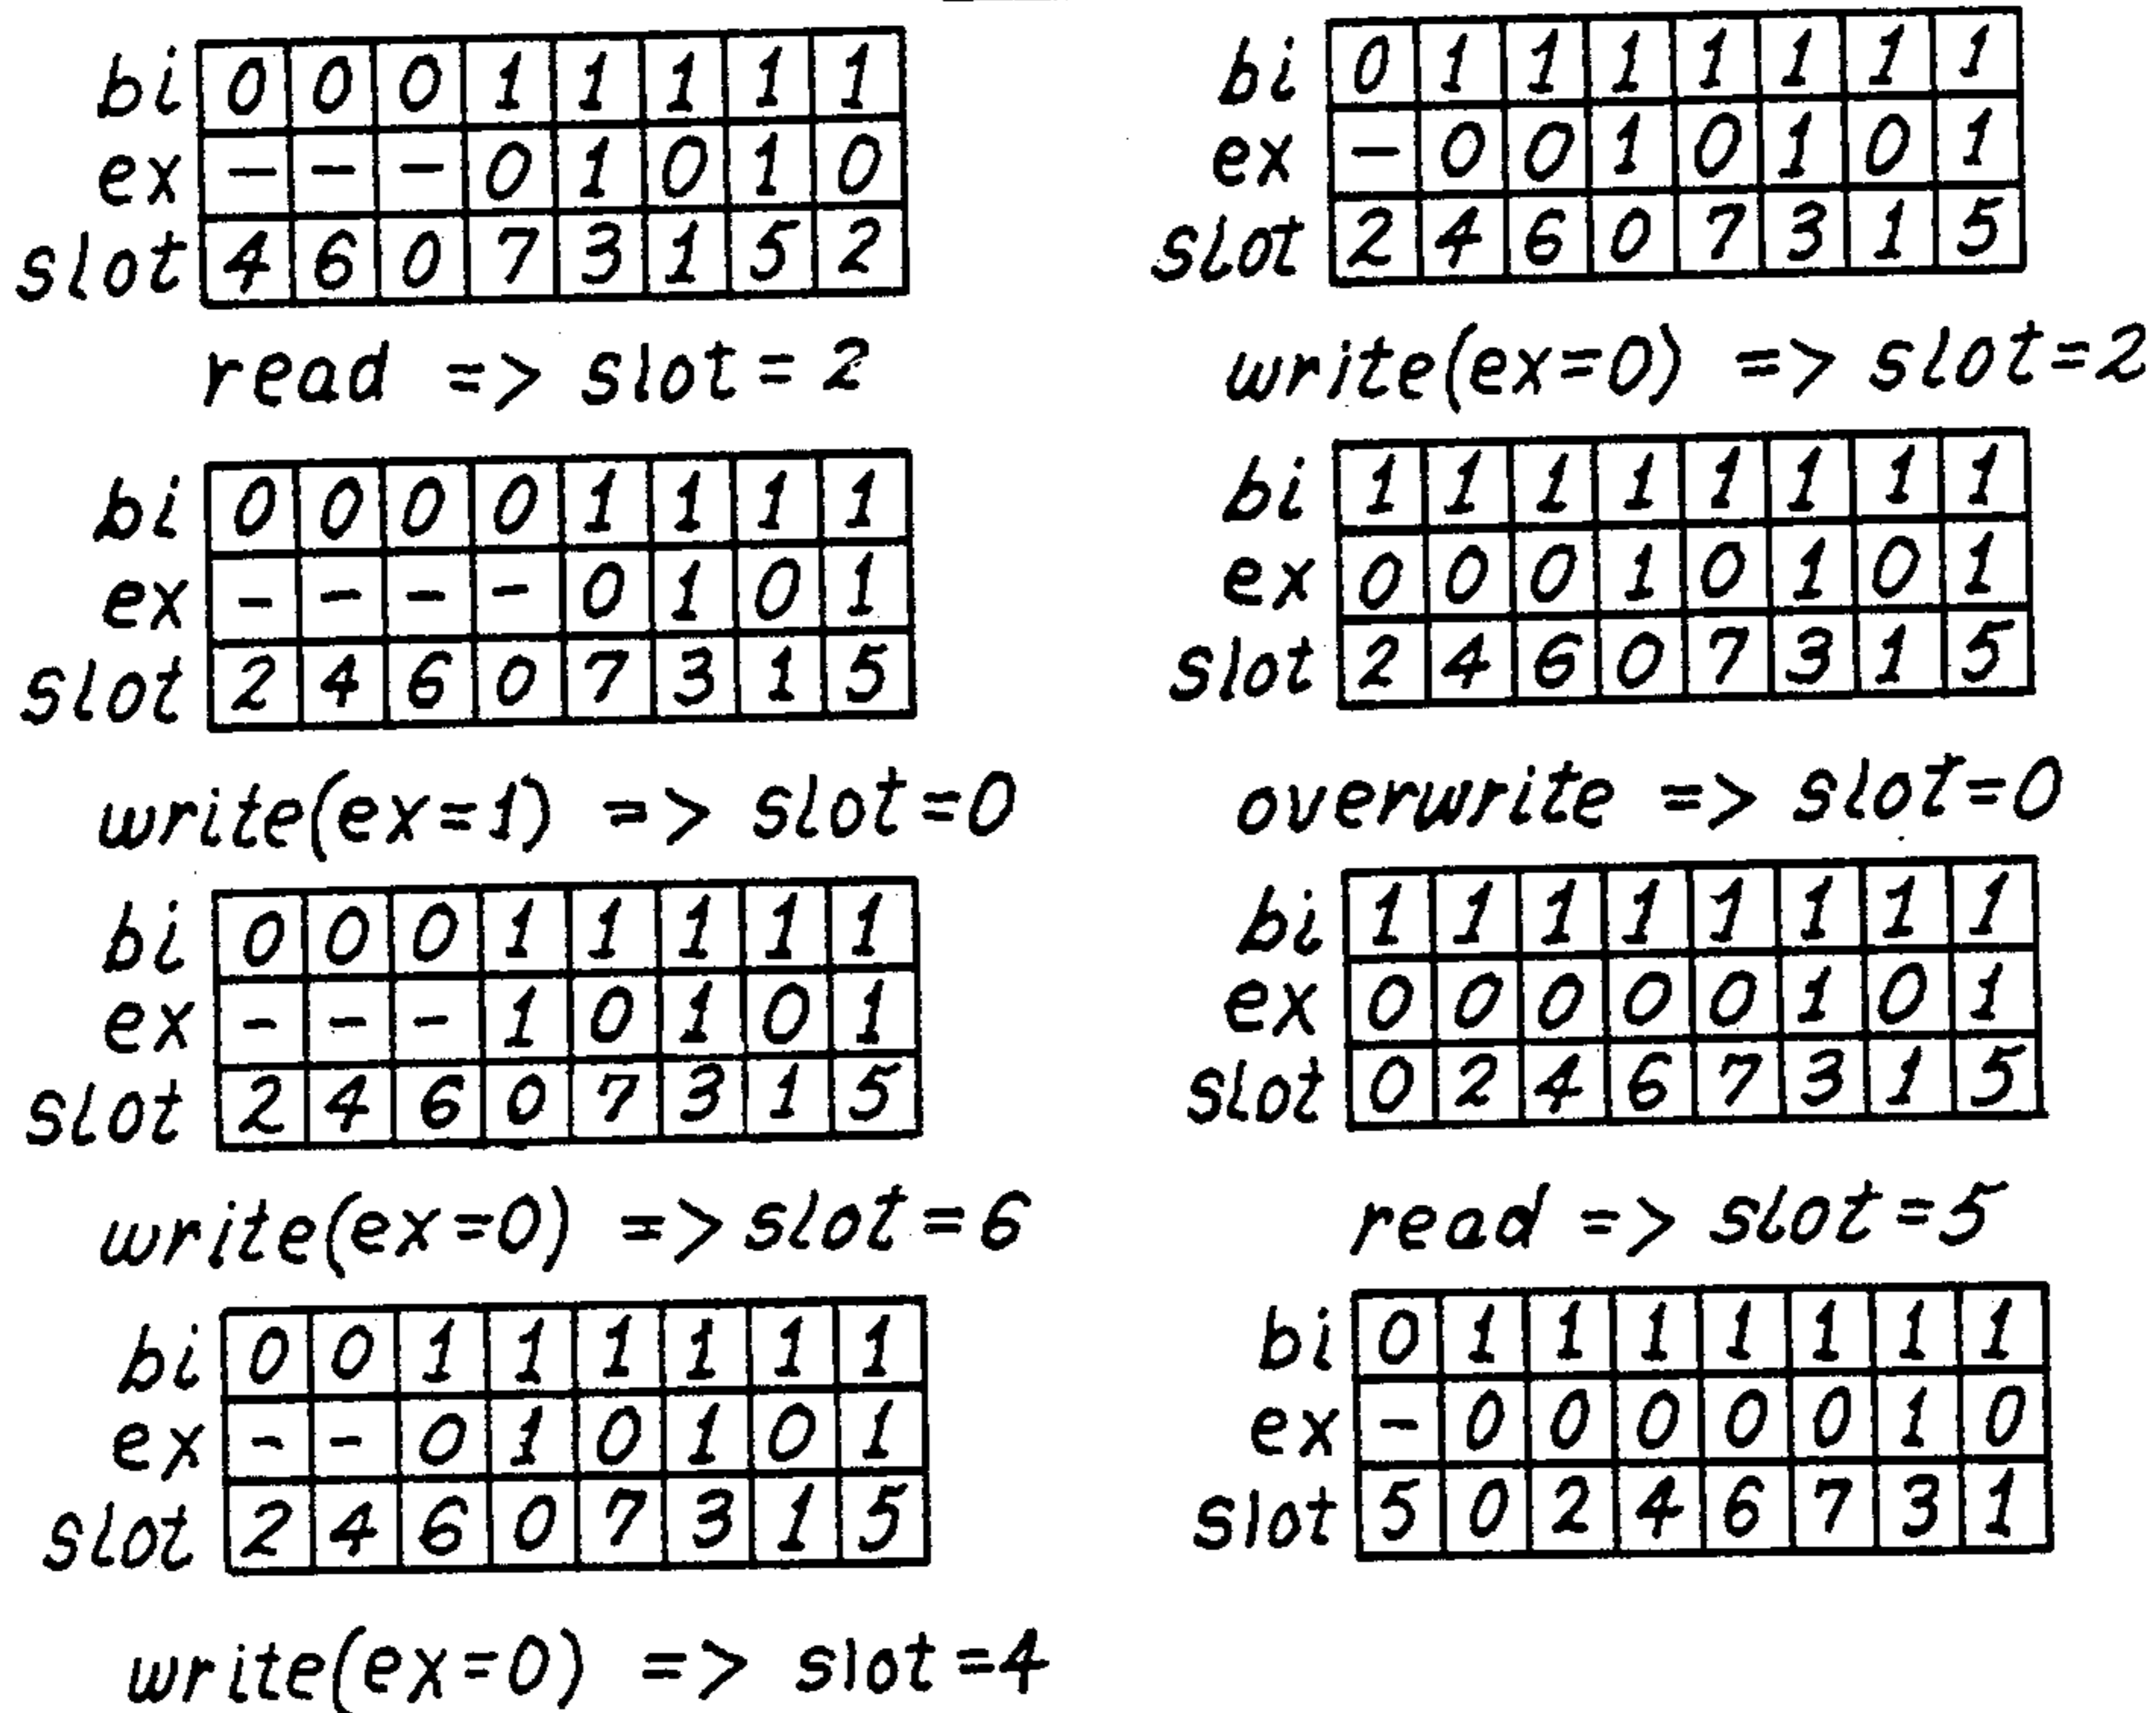 bi 0 0 0 1 1 1 1 1
ex – – – 0 1 0 1 0
slot 4 6 0 7 3 1 5 2
read => slot = 2
bi 0 0 0 0 1 1 1 1
ex – – – – 0 1 0 1
slot 2 4 6 0 7 3 1 5
write(ex=1) => slot=0
bi 0 0 0 1 1 1 1 1
ex – – – 1 0 1 0 1
slot 2 4 6 0 7 3 1 5
write(ex=0) => slot=6
bi 0 0 1 1 1 1 1 1
ex – – 0 1 0 1 0 1
slot 2 4 6 0 7 3 1 5
write(ex=0) => slot=4
bi 0 1 1 1 1 1 1 1
ex – 0 0 1 0 1 0 1
slot 2 4 6 0 7 3 1 5
write(ex=0) => slot=2
bi 1 1 1 1 1 1 1 1
ex 0 0 0 1 0 1 0 1
slot 2 4 6 0 7 3 1 5
overwrite => slot=0
bi 1 1 1 1 1 1 1 1
ex 0 0 0 0 0 1 0 1
slot 0 2 4 6 7 3 1 5
read => slot=5
bi 0 1 1 1 1 1 1 1
ex – 0 0 0 0 0 1 0
slot 5 0 2 4 6 7 3 1